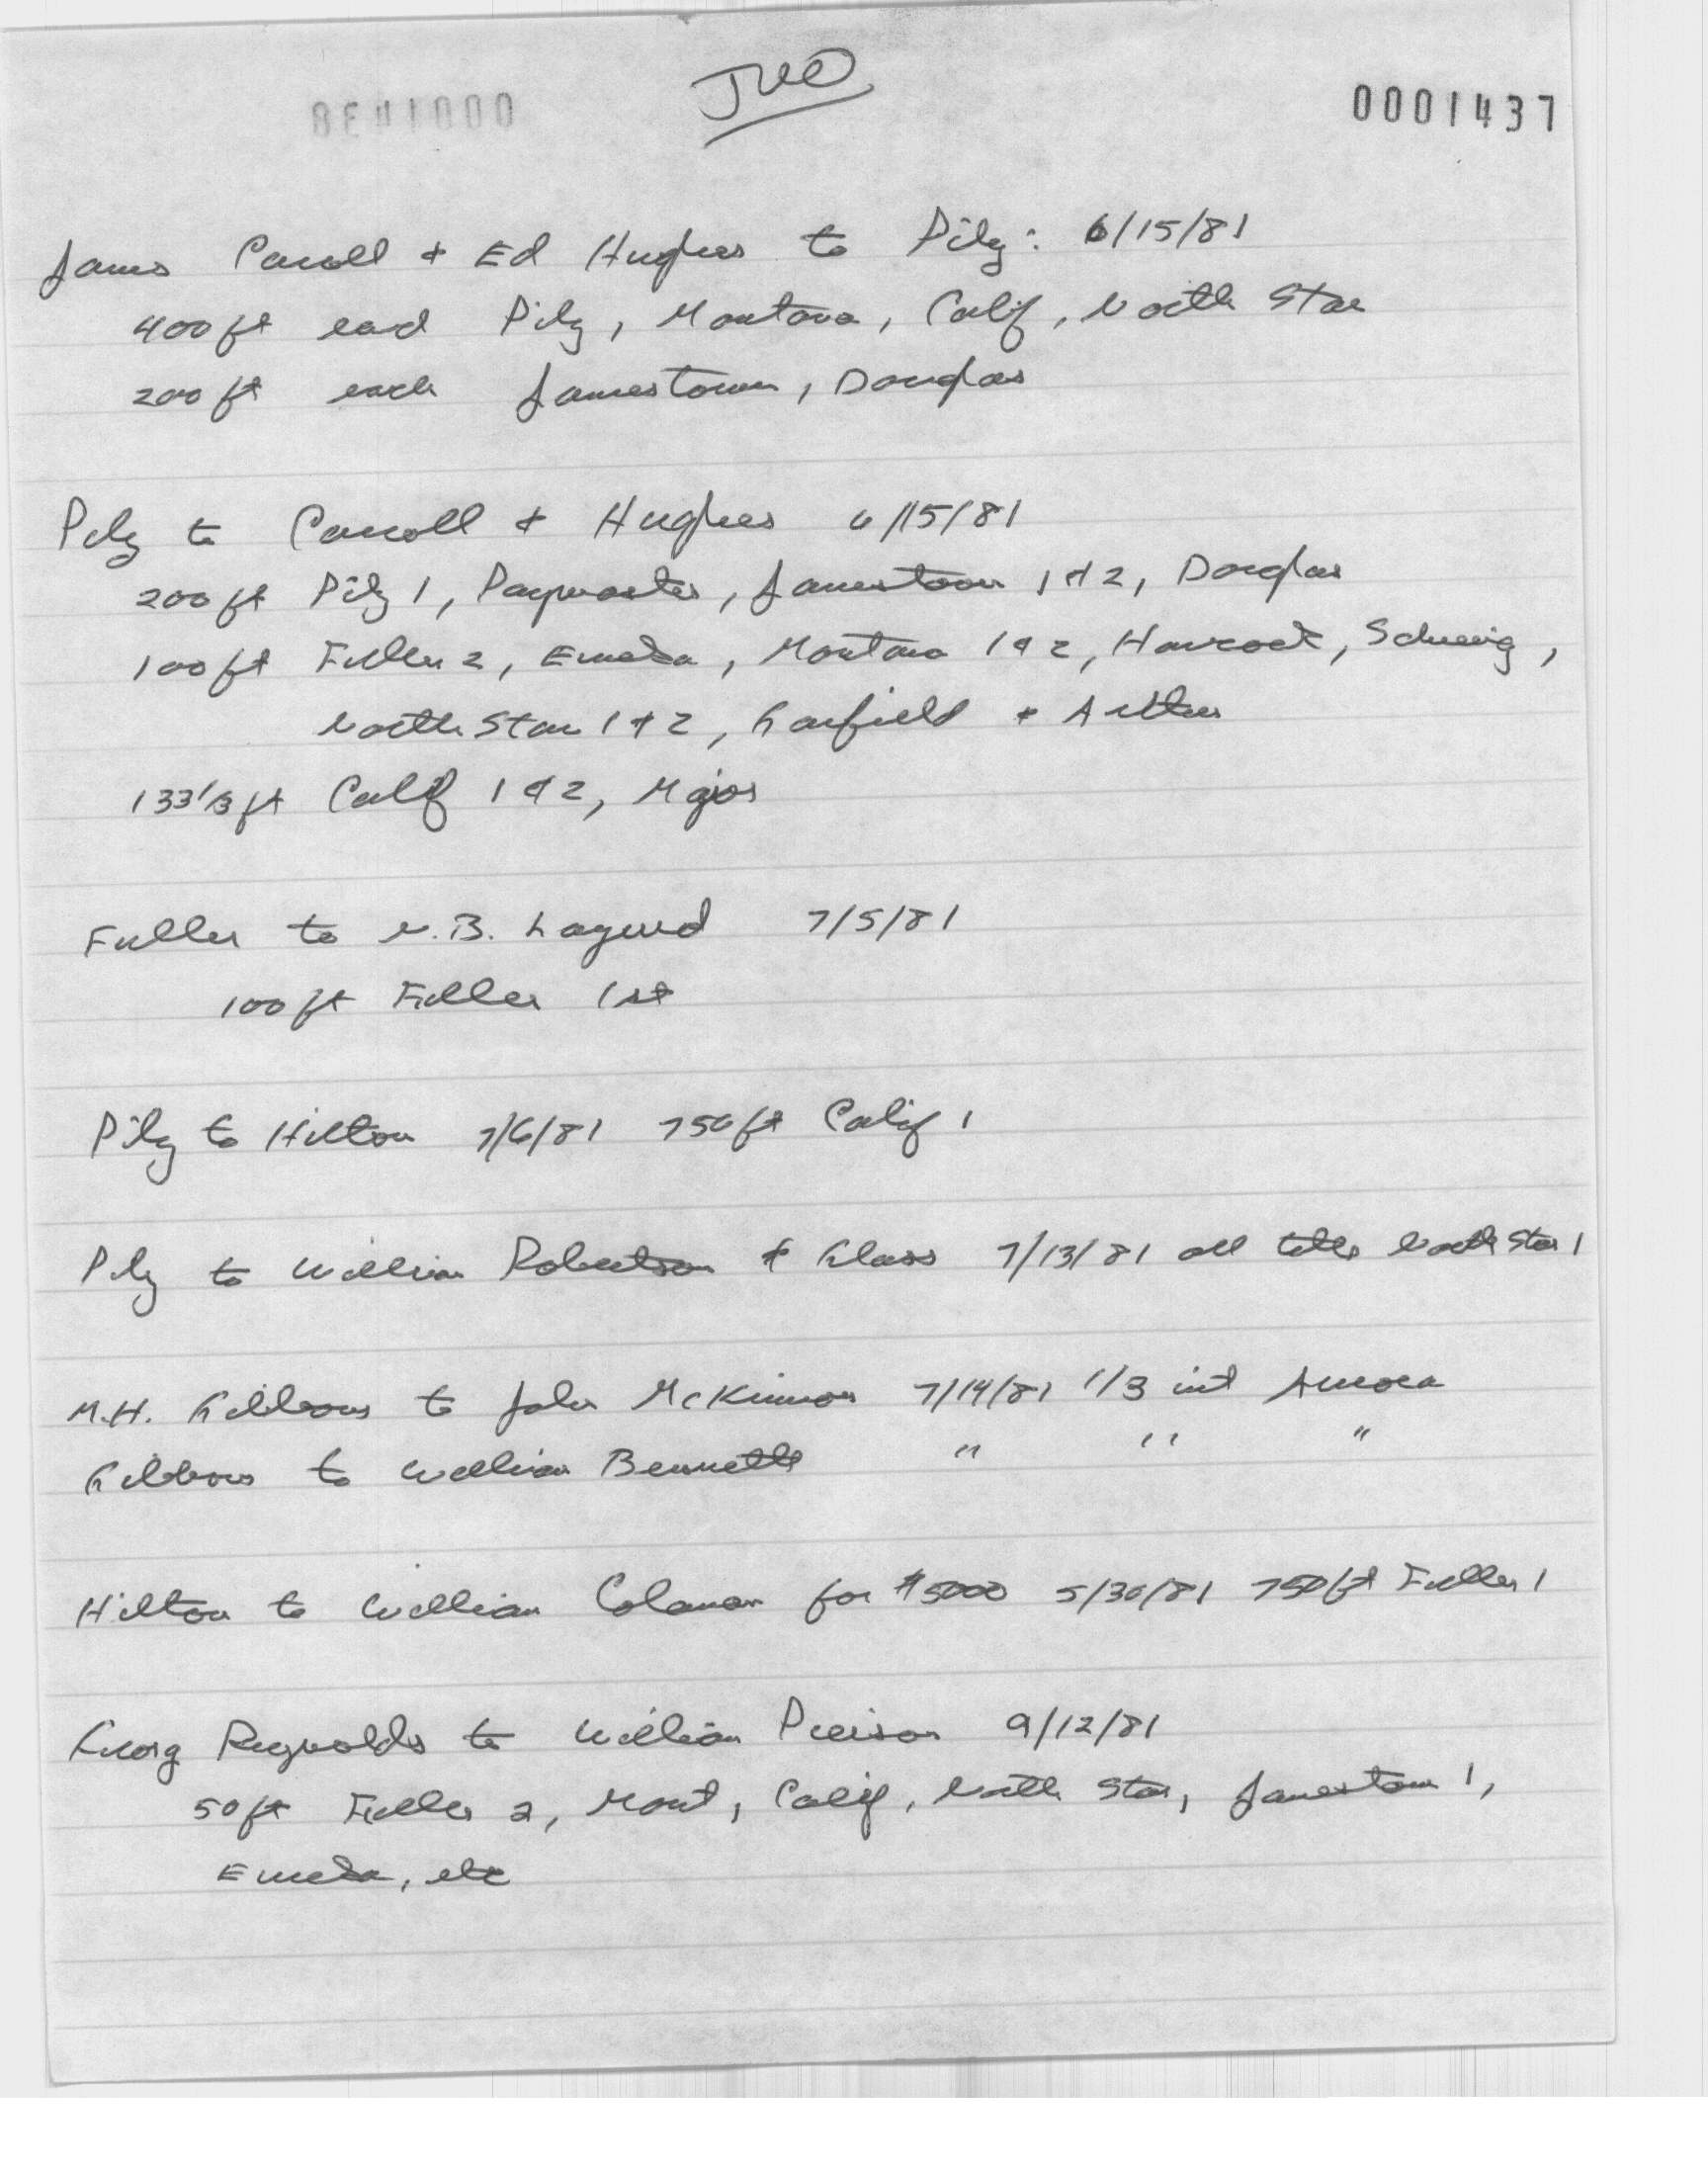 JUO
0001437
James Carroll & Ed Hughes to Pilz: 6/15/81
400 ft each Pilz, Montana, Calif, North Star
200 ft each Jamestown, Douglas
Pilz to Carroll & Hughes 6/15/81
200 ft Pilz 1, Paymaster, Jamestown 1 & 2, Douglas
100 ft Fuller 2, Eureka, Montana 1 & 2, Hancock,
North Star 1 & 2, Garfield & Arthur
133 1/3 ft Calif 1 & 2,
Fuller to N.B. 7/5/81
100 ft Fuller 1st
Pilz to Hilton 7/6/81 750 ft Calif 1
Pilz to William Robertson & Glass 7/13/81 all title North Star 1
M.H. Gibbons to John McKinnon 7/14/81 1/3 int Aurora
Gibbons to William Bennetts " " "
Hilton to William Colaman for $5000 5/30/81 750 ft Fuller 1
Georg Reynolds to William Pierson 9/12/81
50 ft Fuller 2, Mont, Calif, North Star, Jamestown 1,
Eureka, etc